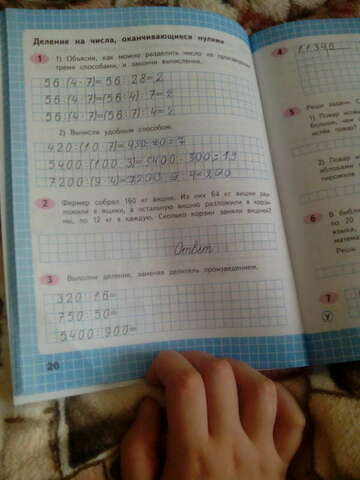 Деление на числа, оканчивающиеся нулями
1 1) Объясни, как можно разделить число на произведение
тремя способами, и закончи вычисления.
56:(4·7)=56:28=2
56:(4·7)=(56:4):7=2
56:(4·7)=(56:7):4=2
2) Вычисли удобным способом.
420:(10·7)=420:70=7
5400:(100·3)=5400:300=19
7200:(9·4)=7200:9:4=200
2 Фермер собрал 160 кг вишни. Из них 64 кг вишни раз-
ложили в ящики, а остальную вишню разложили в корзи-
ны, по 12 кг в каждую. Сколько корзин заняли вишней?
Ответ
3 Выполни деление, заменяя делитель произведением.
320:16=
750:50=
5400:900=
20
4
11340
5 Реши задачи.
1) Повар
больше, чем
2) Повар
яблоками
пирожков
6 В
по 20
языка,
матема
Реши
7